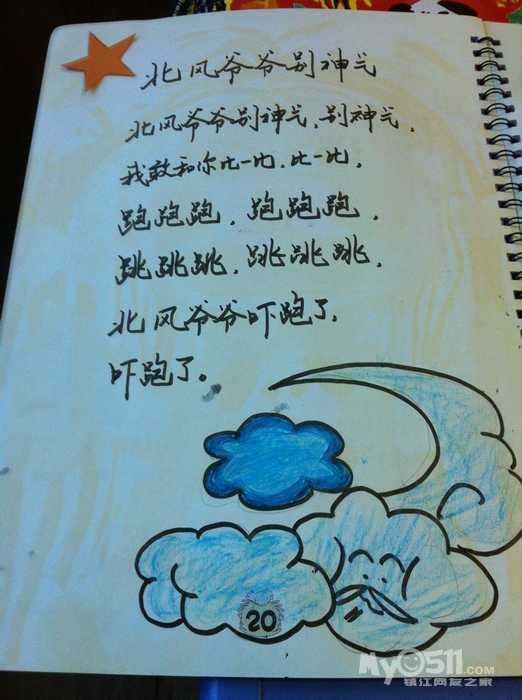 北风爷爷别神气
北风爷爷别神气，别神气，
我敢和你比一比，比一比，
跑跑跑，跑跑跑，
跳跳跳，跳跳跳，
北风爷爷吓跑了，
吓跑了。
20
My0511.com
镇江网友之家